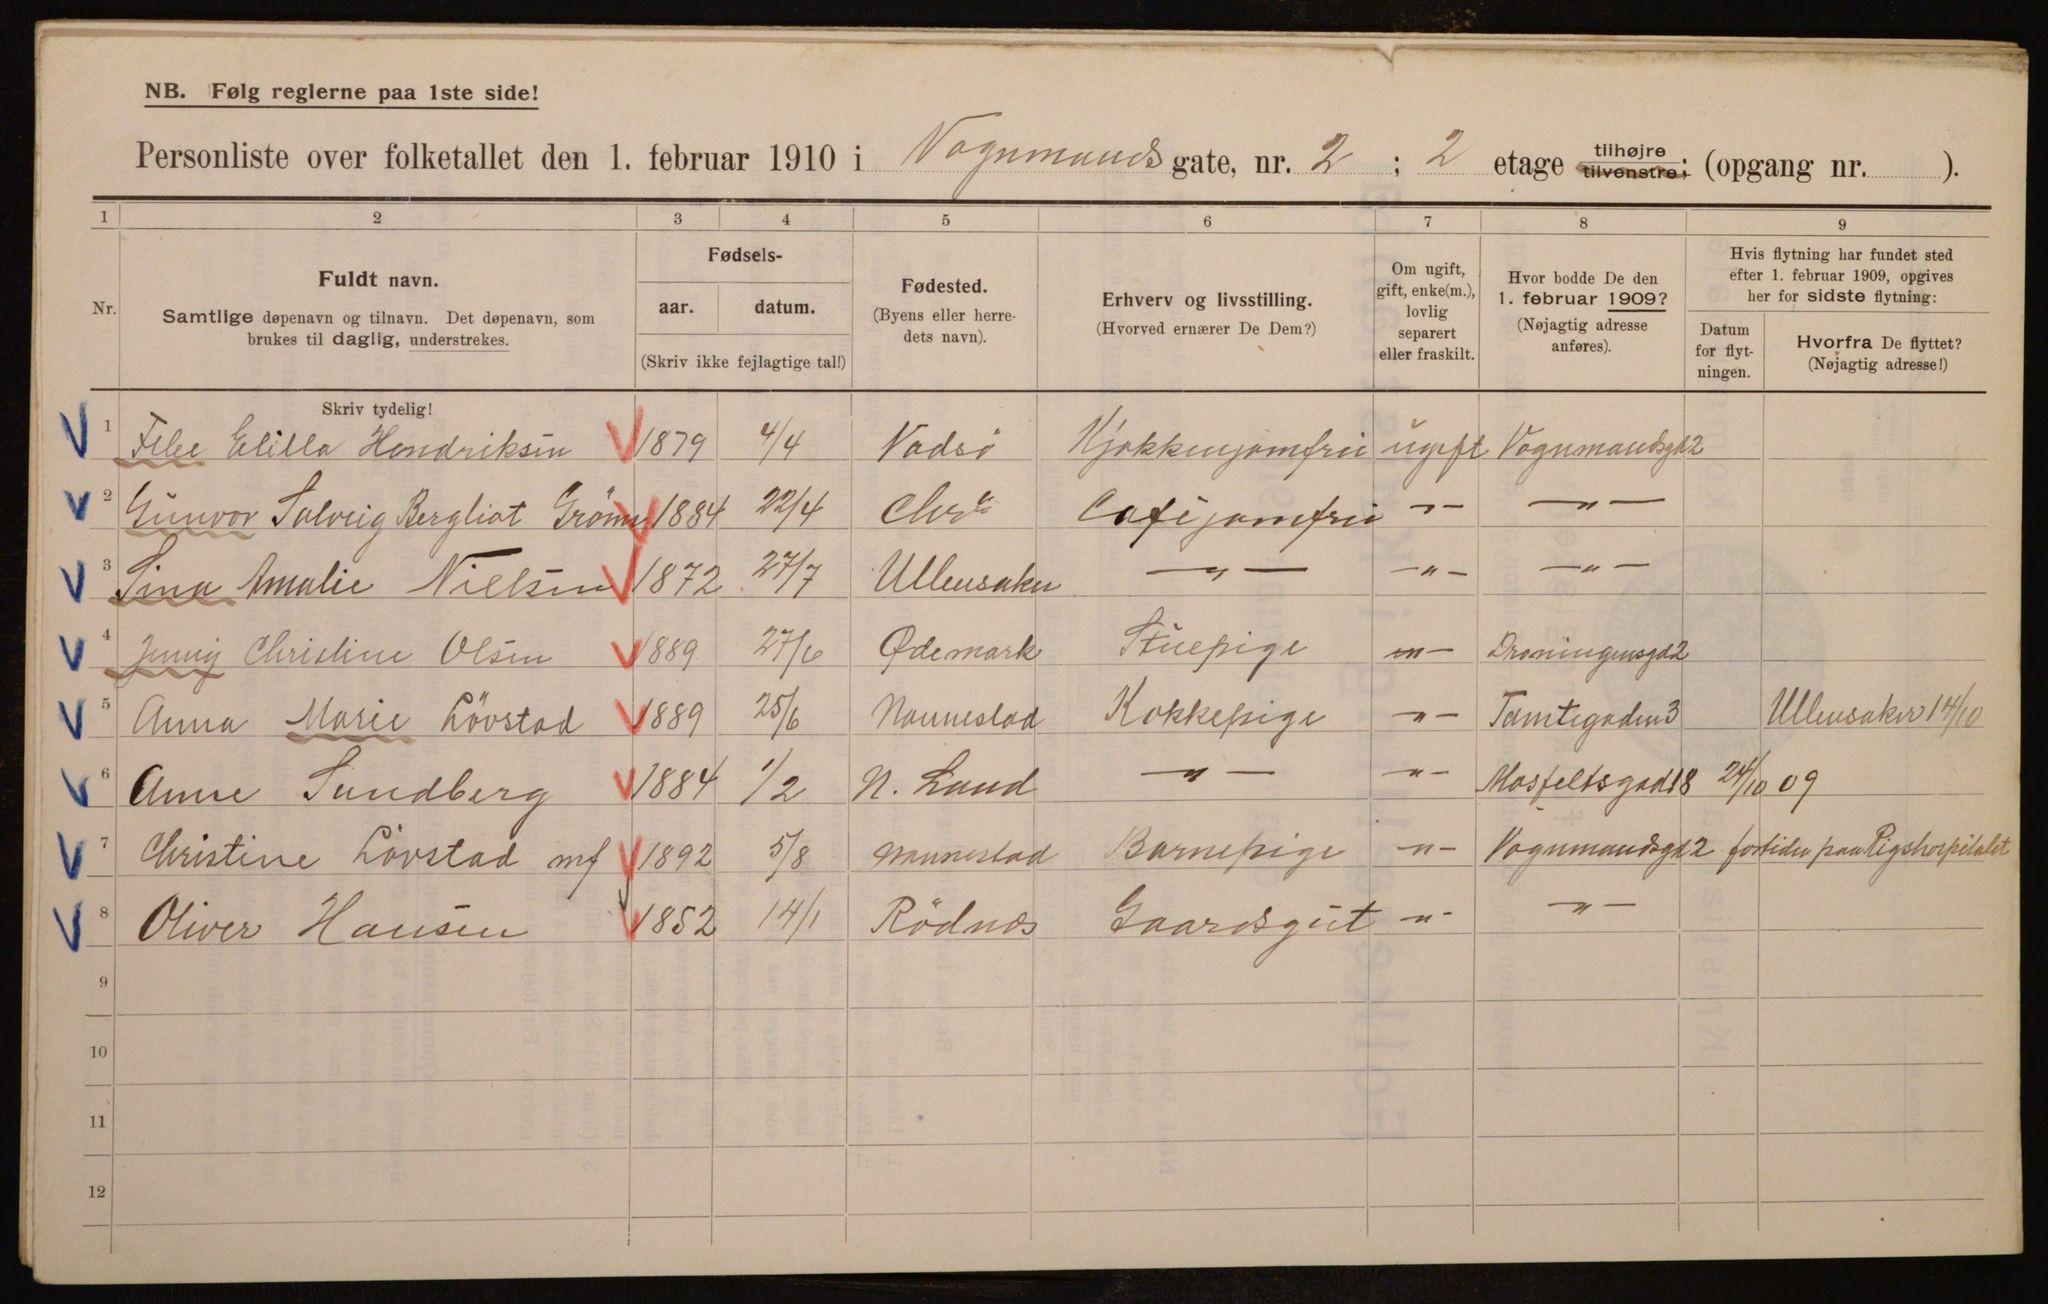 NB. Følg reglerne paa 1ste side!
Personliste over folketallet den 1. februar 1910 i Vognmands gate, nr. 2 ; 2 etage tilhøjre tilvenstre; (opgang nr. ).
1 2 3 4 5 6 7 8 9
Nr.
Fuldt navn.
Samtlige døpenavn og tilnavn. Det døpenavn, som
brukes til daglig, understrekes.
Fødsels-
aar. datum.
(Skriv ikke fejlagtige tal!)
Fødested.
(Byens eller herre-
dets navn).
Erhverv og livsstilling.
(Hvorved ernærer De Dem?)
Om ugift,
gift, enke(m.),
lovlig
separert
eller fraskilt.
Hvor bodde De den
1. februar 1909?
(Nøjagtig adresse
anføres).
Hvis flytning har fundet sted
efter 1. februar 1909, opgives
her for sidste flytning:
Datum
for flyt-
ningen.
Hvorfra De flyttet?
(Nøjagtig adresse!)
Skriv tydelig!
1 Elilla Hendriksen 1879 4/4 Vadsö Kjøkkenjomfru ugift Vognmandsgd 2
2 Gunvor Solveig Bergliot 1884 22/4 Chra Caféjomfru -"- -"-
3 Sina Amalie Nielsen 1872 27/7 Ullensaker -"- -"- -"-
4 Jenny Christine Olsen 1889 27/6 Ødemark Stuepige -"- Droningensgd 2
5 Anna Marie Lövstad 1889 25/6 Nannestad Kokkepige -"- Tomtegaden 3 Ullensaker 14/10
6 Anne Sundberg 1884 1/2 N. Land -"- -"- 24/10 09
7 Christine Lövstad mf 1892 5/8 Nannestad Barnepige -"- Vognmandsgd 2 fortiden paa Rigshospitalet
8 Oliver Hansen 1852 14/1 Rödnæs Gaardsgut -"- -"-
9
10
11
12